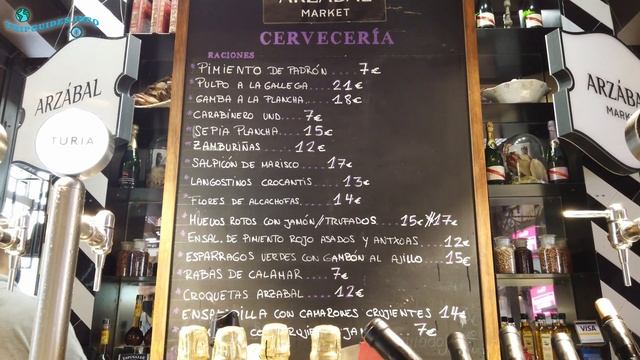 TRIPGUIDESPRO
ARZÁBAL
MARKET
CERVECERÍA
RACIONES
* PIMIENTO DE PADRÓN....7€
* PULPO A LA GALLEGA...21€
* GAMBA A LA PLANCHA...18€
* CARABINERO UND....7€
* SEPIA PLANCHA...15€
* ZAMBURIÑAS....12€
* SALPICÓN DE MARISCO...17€
* LANGOSTINOS CROCANTIS...13€
* FLORES DE ALCACHOFAS....14€
* HUEVOS ROTOS CON JAMÓN//TRUFADOS...15€//17€
* ENSAL. DE PIMIENTO ROJO ASADOS Y ANTXOAS...12€
* ESPÁRRAGOS VERDES CON GAMBÓN AL AJILLO...15€
* RABAS DE CALAHAR...7€
* CROQUETAS ARZABAL....12€
ENSALADILLA CON CAMARONES CRUJIENTES 14€
CON 7€
ARZÁBAL
TURIA
ARZÁBAL
MARK
VISA